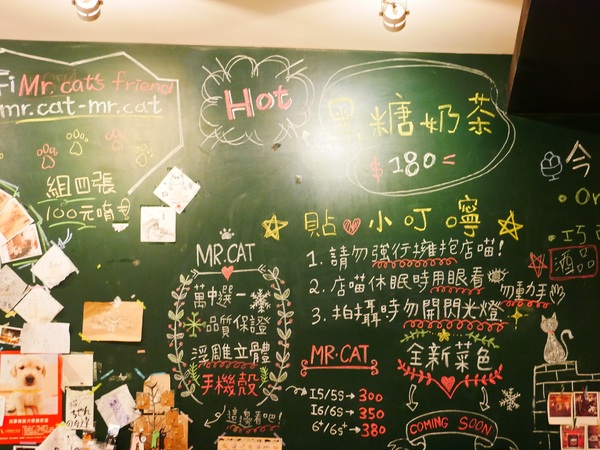 Fi Mr. cat's friend
mr.cat-mr.cat
組四張
100元唷
Hot
黑糖奶茶
$180
貼心小叮嚀
1. 請勿強行擁抱店喵!
2. 店喵休眠時用眼看
勿動手
3. 拍攝時勿開閃光燈
MR.CAT
萬中選一
品質保證
浮雕立體
手機殼
這邊看吧!
MR.CAT
I5/5S→300
I6/6S→350
6+/6s+→380
全新菜色
COMING SOON
今
酒品